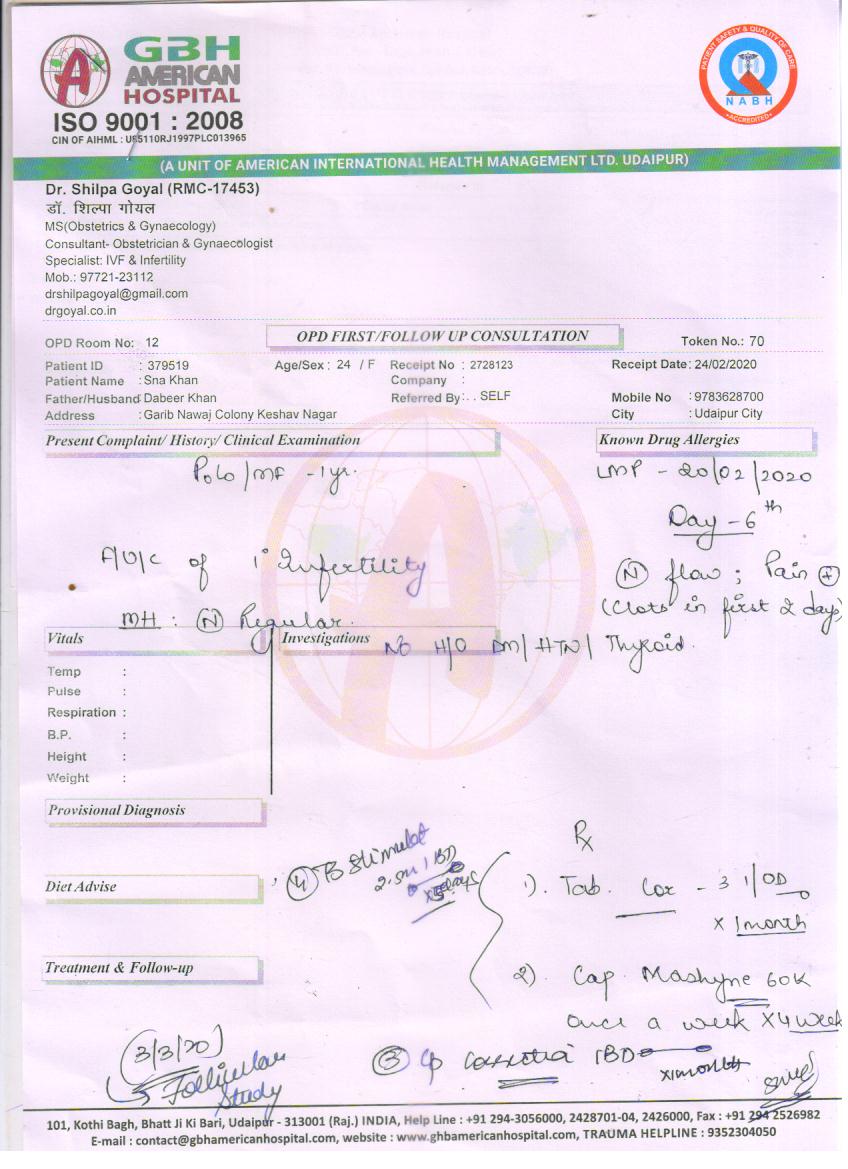 GBH
AMERICAN
HOSPITAL
ISO 9001 : 2008
CIN OF AIHML : U85110RJ1997PLC013965
PATIENT SAFETY & QUALITY OF CARE
NABH
ACCREDITED
(A UNIT OF AMERICAN INTERNATIONAL HEALTH MANAGEMENT LTD. UDAIPUR)
Dr. Shilpa Goyal (RMC-17453)
डॉ. शिल्पा गोयल
MS(Obstetrics & Gynaecology)
Consultant- Obstetrician & Gynaecologist
Specialist: IVF & Infertility
Mob.: 97721-23112
drshilpagoyal@gmail.com
drgoyal.co.in
OPD Room No: 12 OPD FIRST/FOLLOW UP CONSULTATION Token No.: 70
Patient ID : 379519 Age/Sex : 24 / F Receipt No : 2728123 Receipt Date : 24/02/2020
Patient Name : Sna Khan Company :
Father/Husband: Dabeer Khan Referred By : . . SELF Mobile No : 9783628700
Address : Garib Nawaj Colony Keshav Nagar City : Udaipur City
Present Complaint/ History/ Clinical Examination Known Drug Allergies
P0L0/MF - 1 yr. LMP - 20/02/2020
Day - 6th
A/U/C of 1° Infertility (N) flow ; Pain (+)
MH : (N) Regular. (Clots in first 2 days)
Vitals Investigations No H/O DM/HTN/ Thyroid.
Temp :
Pulse :
Respiration :
B.P. :
Height :
Weight :
Provisional Diagnosis
Rx
(4) 2.5 1 BD
x 5 days
Diet Advise 1). Tab. Cor - 3 1/OD
x 1 month
Treatment & Follow-up 2). Cap 60K
once a week x 4 week
(3/3/20) (3) 1BD
x1month
Follicular
Study
101, Kothi Bagh, Bhatt Ji Ki Bari, Udaipur - 313001 (Raj.) INDIA, Help Line : +91 294-3056000, 2428701-04, 2426000, Fax : +91 294 2526982
E-mail : contact@gbhamericanhospital.com, website : www.ghbamericanhospital.com, TRAUMA HELPLINE : 9352304050